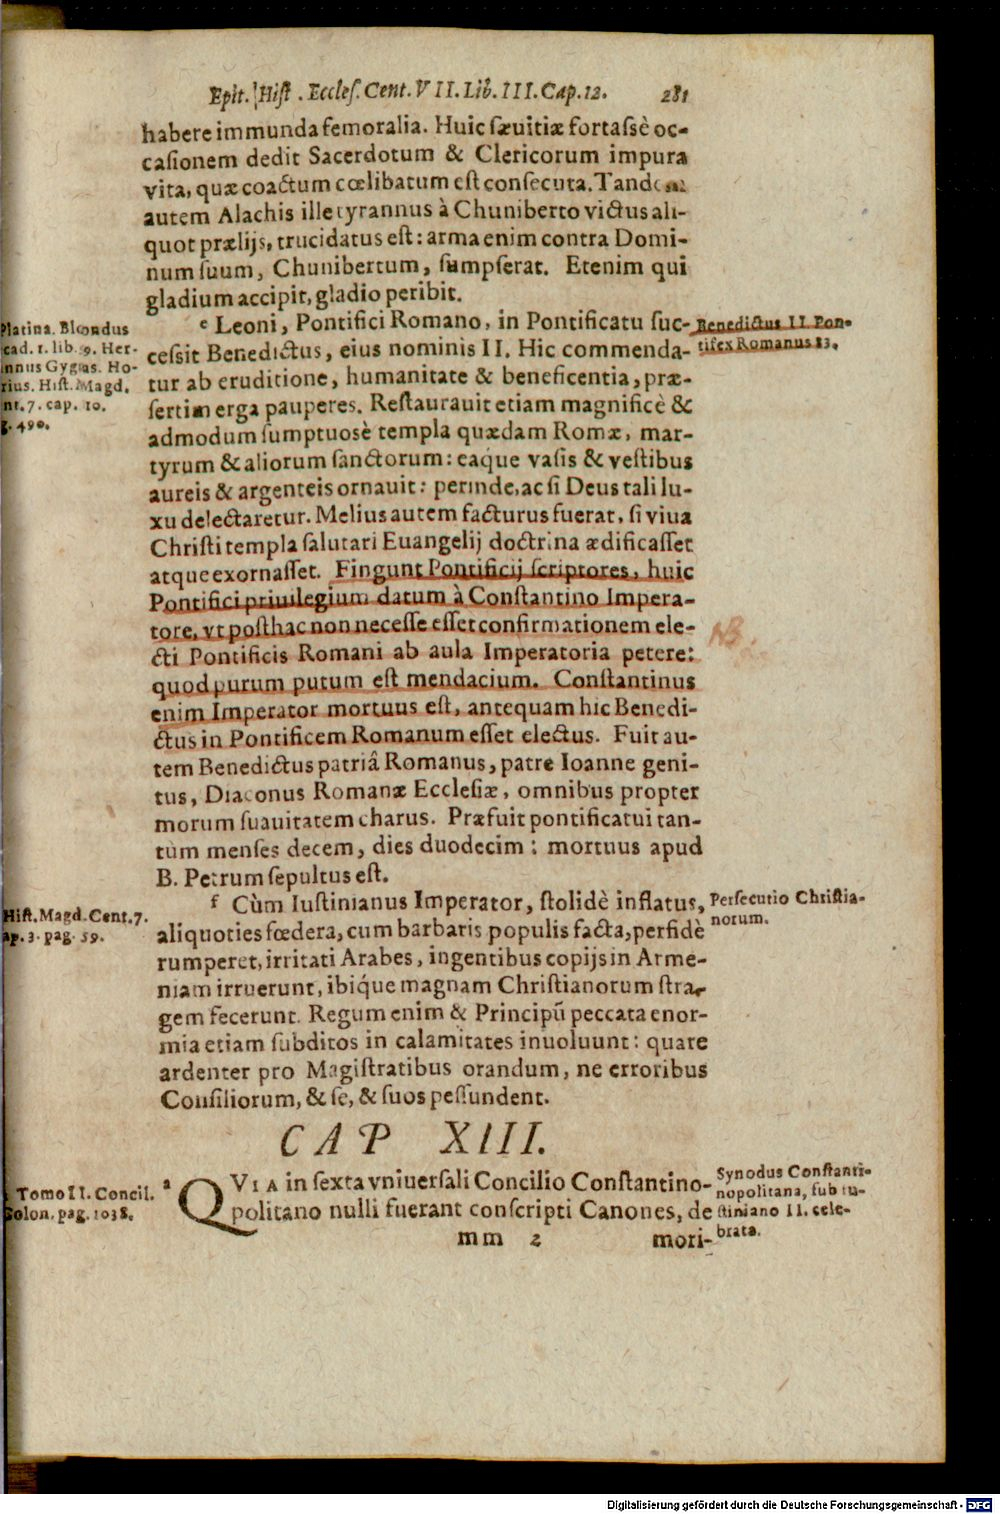 Epit. Hist. Eccles. Cent. VII. Lib. III. Cap. 12. 281
habere immunda femoralia. Huic sæuitiæ fortassè oc-
casionem dedit Sacerdotum & Clericorum impura
vita, quæ coactum cœlibatum est consecuta. Tandem
autem Alachis ille tyrannus à Chuniberto victus ali-
quot prælijs, trucidatus est: arma enim contra Domi-
num suum, Chunibertum, sumpserat. Etenim qui
gladium accipit, gladio peribit.
e Leoni, Pontifici Romano, in Pontificatu suc-
cessit Benedictus, eius nominis II. Hic commenda-
tur ab eruditione, humanitate & beneficentia, præ-
sertim erga pauperes. Restaurauit etiam magnificè &
admodum sumptuosè templa quædam Romæ, mar-
tyrum & aliorum sanctorum: eaque vasis & vestibus
aureis & argenteis ornauit: perinde, ac si Deus tali lu-
xu delectaretur. Melius autem facturus fuerat, si viua
Christi templa salutari Euangelij doctrina ædificasset
atque exornasset. Fingunt Pontificij scriptores, huic
Pontifici priuilegium datum à Constantino Impera-
tore, vt posthac non necesse esset confirmationem ele-
cti Pontificis Romani ab aula Imperatoria petere:
quod purum putum est mendacium. Constantinus
enim Imperator mortuus est, antequam hic Benedi-
ctus in Pontificem Romanum esset electus. Fuit au-
tem Benedictus patriâ Romanus, patre Ioanne geni-
tus, Diaconus Romanæ Ecclesiæ, omnibus propter
morum suauitatem charus. Præfuit pontificatui tan-
tùm menses decem, dies duodecim: mortuus apud
B. Petrum sepultus est.
f Cùm Iustinianus Imperator, stolidè inflatus,
aliquoties fœdera, cum barbaris populis facta, perfidè
rumperet, irritati Arabes, ingentibus copijs in Arme-
niam irruerunt, ibique magnam Christianorum stra-
gem fecerunt. Regum enim & Principũ peccata enor-
mia etiam subditos in calamitates inuoluunt: quare
ardenter pro Magistratibus orandum, ne erroribus
Consiliorum, & se, & suos pessundent.
CAP XIII.
a QVIA in sexta vniuersali Concilio Constantino-
politano nulli fuerant conscripti Canones, de
mm 2 mori-
Platina. Blondus
cad. 1. lib. 9. Her-
innus Gygas. Ho-
rius. Hist. Magd.
nt. 7. cap. 10.
g. 490.
Hist. Magd. Cent. 7.
ap. 3. pag. 59.
Tomo II. Concil.
Colon. pag. 1038.
Benedictus II. Pon-
tifex Romanus 83.
NB.
Persecutio Christia-
norum.
Synodus Constanti-
nopolitana, sub Iu-
stiniano II. cele-
brata.
Digitalisierung gefördert durch die Deutsche Forschungsgemeinschaft - DFG